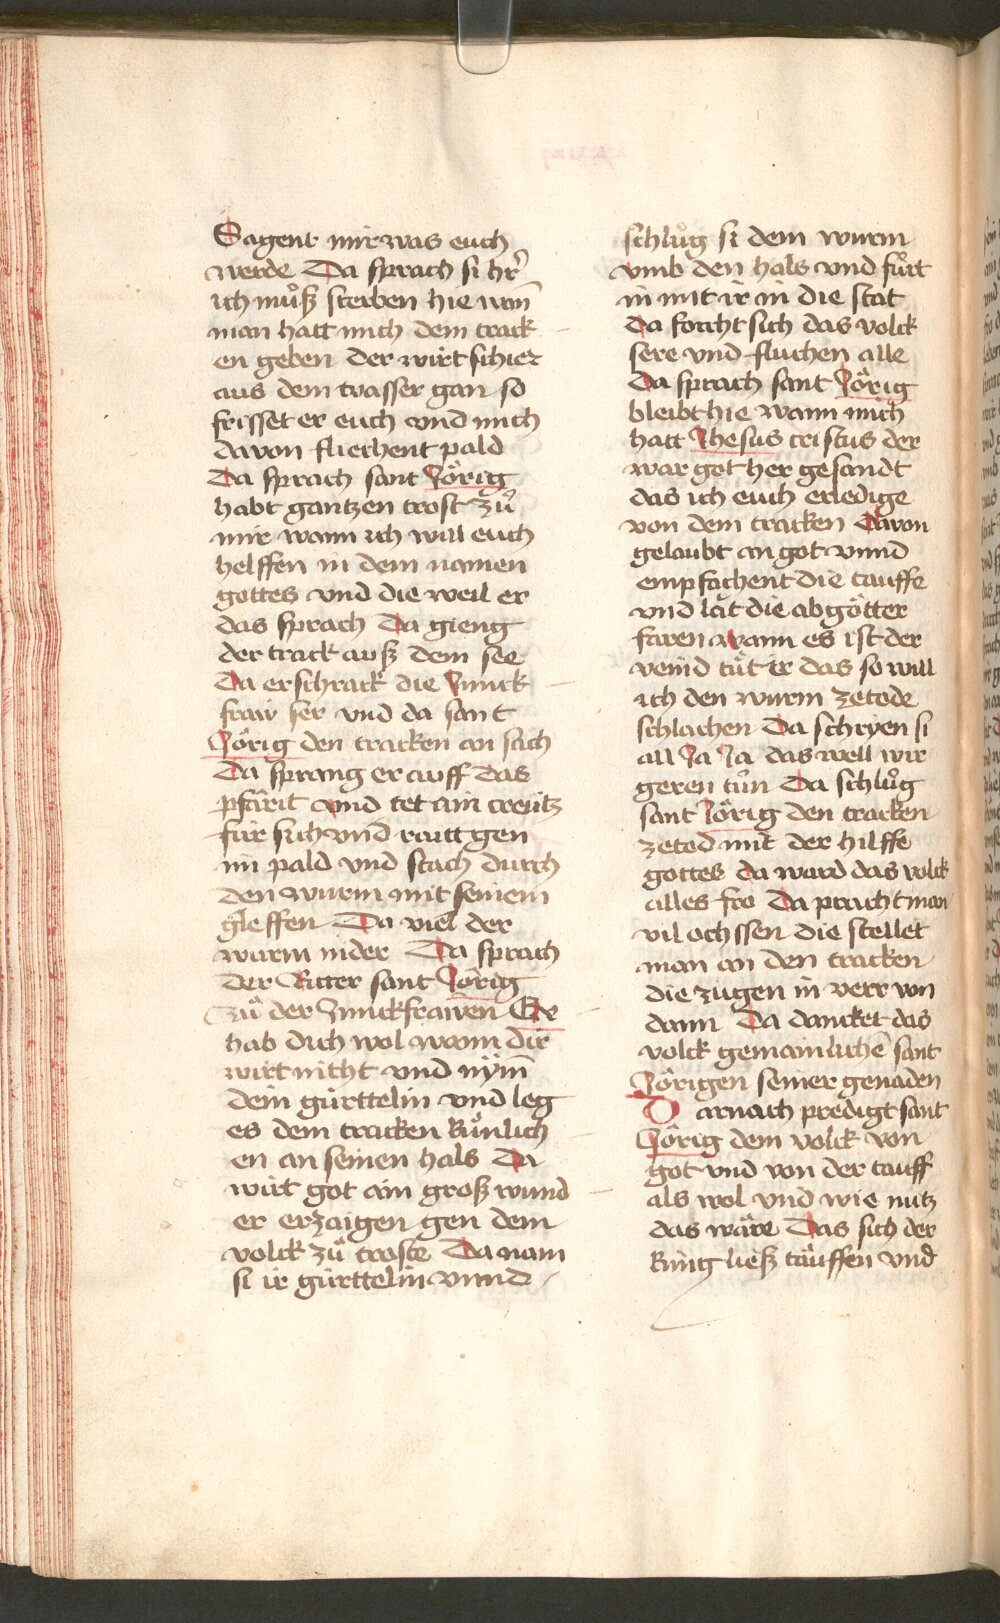 Sagent mir was euch
werde Da sprach si hr̄
ich mūß sterben hie wañ
man hatt mich dem track
en geben der wirt schier
aus dem wasser gan so
frisset er euch vnd mich
davon fliechent pald
Da sprach sant Jörig
habt gantzen trost zů
mir wann ich will euch
helffen in dem namen
gottes vnd die weil er
das sprach Da gieng
der track auß dem see
Da erschrack die Junck
fraw ser vnd da sant
Jörig den tracken an sach
Da sprang er auff das
pfärit vnd tet ain creütz
für sich vnd raitt gen
im pald vnd stach durch
den wurm mit seinem
gleffen Da viel der
wurm nider Da sprach
der Ritter sant Jörig
zů der Junckfrawen Ge
hab dich wol wann dir
wirt nicht vnd nÿm̄
dein gürttelin vnd leg
es dem tracken künlich
en an seinen hals Da
wirt got ain groß wund
er erzaigen gen dem
volck zů troste Da nam
si ir gürttelin vnnd
schlůg si dem wurm
vmb den hals vnd fůrt
in mit ir in die stat
Da forcht sich das volck
sere vnd fluchen alle
Da sprach sant Jörig
bleibt hie wann mich
hatt Jhesus cristus der
war got her gesandt
das ich euch erledige
von dem tracken Davon
gelaubt an got vnnd
empfachent die tauffe
vnd lät die abgötter
faren wann es ist der
veind tůt ir das so will
ich den wurm zetode
schlachen Da schryen si
all Ja Ja das well wir
geren tůn Da schlůg
sant Jörig den tracken
zetod mit der hilffe
gottes da ward das volck
alles fro Da pracht man
vil ochssen die stellet
man an den tracken
die zugen in verr von
dann Da dancket das
volck gemainlichē sant
Jörigen seiner genaden
D arnach predigt sant
Jörig dem volck von
got vnd von der tauff
als wol vnd wie nutz
das wäre Das sich der
küng ließ täuffen vnd